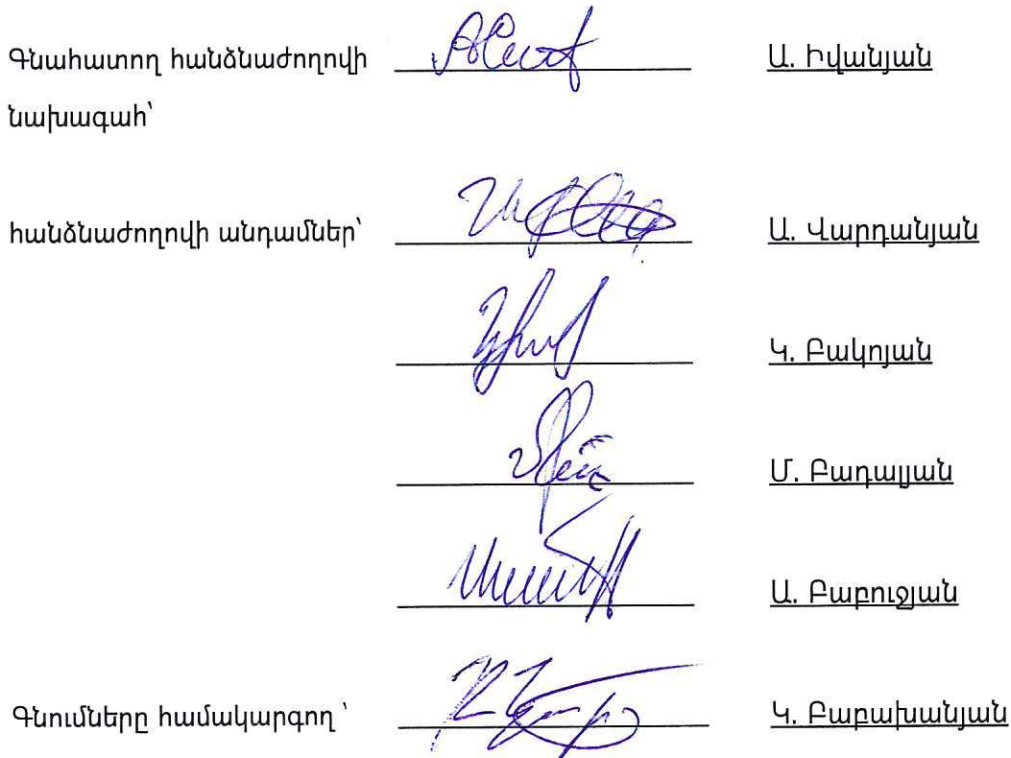 Գնահատող հանձնաժողովի Ա. Իվանյան
նախագահ՝
հանձնաժողովի անդամներ՝ Ա. Վարդանյան
Կ. Բակոյան
Մ. Բադալյան
Ա. Բաբուջյան
Գնումները համակարգող ՝ Կ. Բաբախանյան